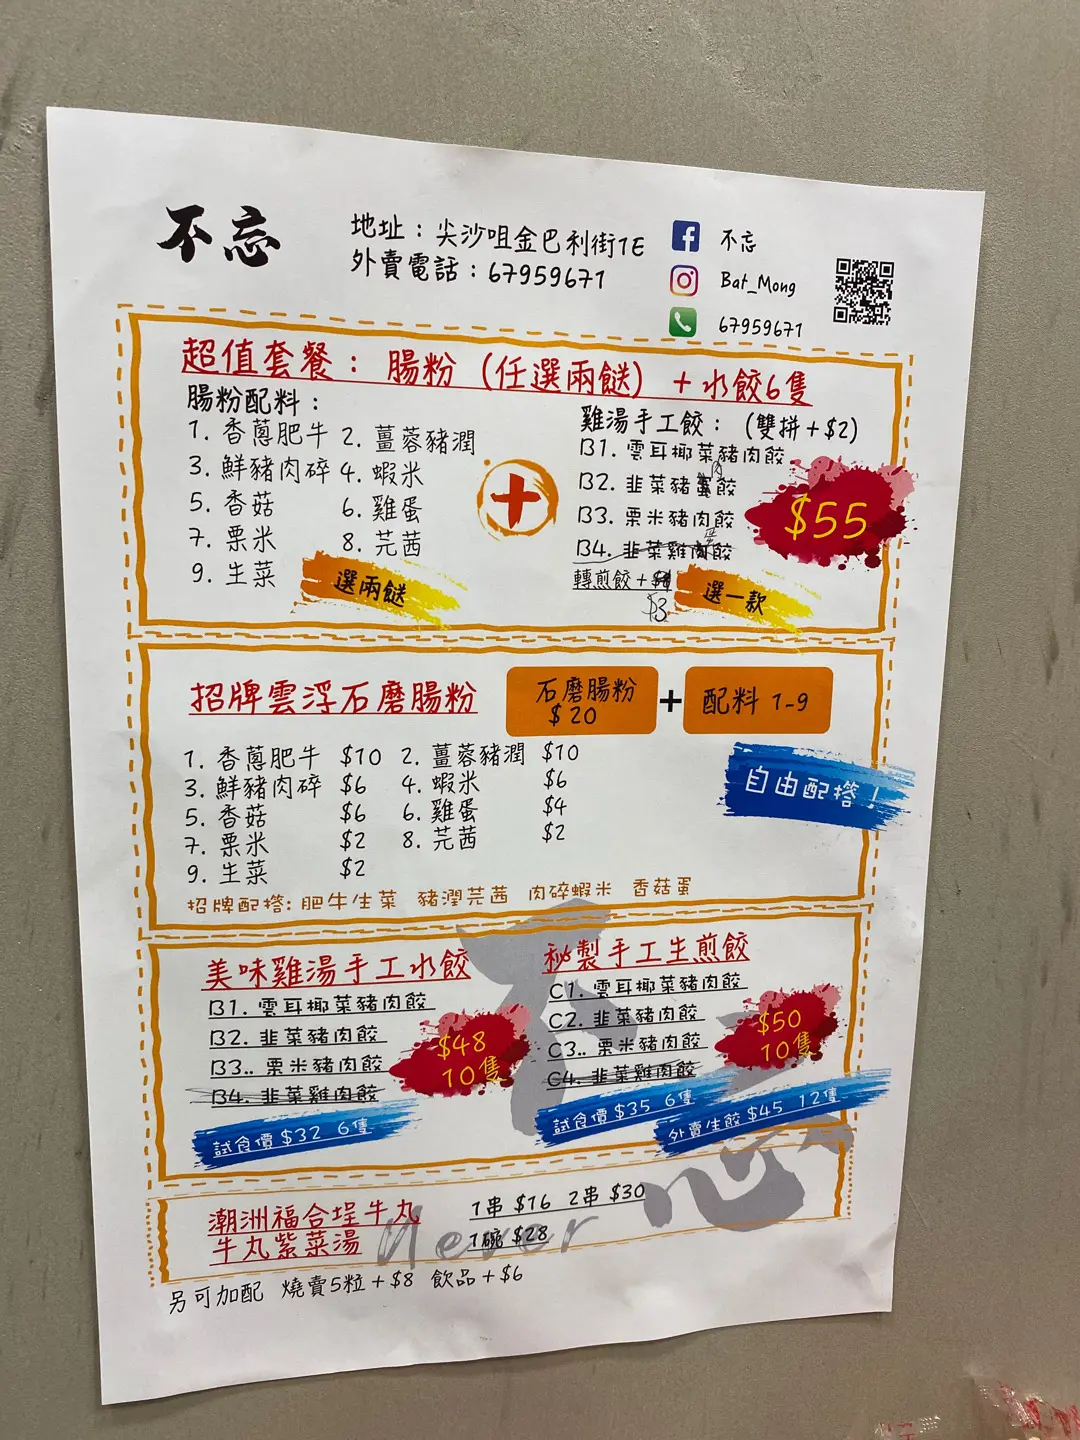 不忘
地址：尖沙咀金巴利街1E
外賣電話：67959671
不忘
Bat_Mong
67959671
超值套餐：腸粉（任選兩餸）+水餃6隻
腸粉配料：
1. 香蔥肥牛 2. 薑蓉豬潤
3. 鮮豬肉碎 4. 蝦米
5. 香菇 6. 雞蛋
7. 粟米 8. 芫茜
9. 生菜
選兩餸
+
雞湯手工餃：（雙拼+$2）
B1. 雲耳椰菜豬肉餃
B2. 韭菜豬肉餃
B3. 粟米豬肉餃
B4. 韭菜雞肉餃
轉煎餃+
$3
選一款
$55
招牌雲浮石磨腸粉
石磨腸粉
$20
+
配料 1-9
1. 香蔥肥牛 $10 2. 薑蓉豬潤 $10
3. 鮮豬肉碎 $6 4. 蝦米 $6
5. 香菇 $6 6. 雞蛋 $4
7. 粟米 $2 8. 芫茜 $2
9. 生菜 $2
自由配撘！
招牌配撘: 肥牛生菜 豬潤芫茜 肉碎蝦米 香菇蛋
美味雞湯手工水餃
B1. 雲耳椰菜豬肉餃
B2. 韭菜豬肉餃
B3.. 粟米豬肉餃
B4. 韭菜雞肉餃
$48
10隻
試食價 $32 6隻
秘製手工生煎餃
C1. 雲耳椰菜豬肉餃
C2. 韭菜豬肉餃
C3.. 粟米豬肉餃
C4. 韭菜雞肉餃
$50
10隻
試食價 $35 6隻
外賣生餃 $45 12隻
潮洲福合埕牛丸 1串 $16 2串 $30
牛丸紫菜湯 1碗 $28
不忘
Never
另可加配 燒賣5粒+$8 飲品+$6